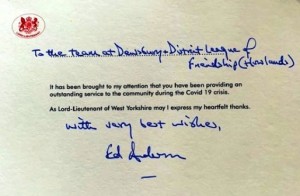 To the team at Dewsbury & District League of
Friendship (Howlands)
It has been brought to my attention that you have been providing an
outstanding service to the community during the Covid 19 crisis.
As Lord-Lieutenant of West Yorkshire may I express my heartfelt thanks.
With very best wishes,
Ed Anderson